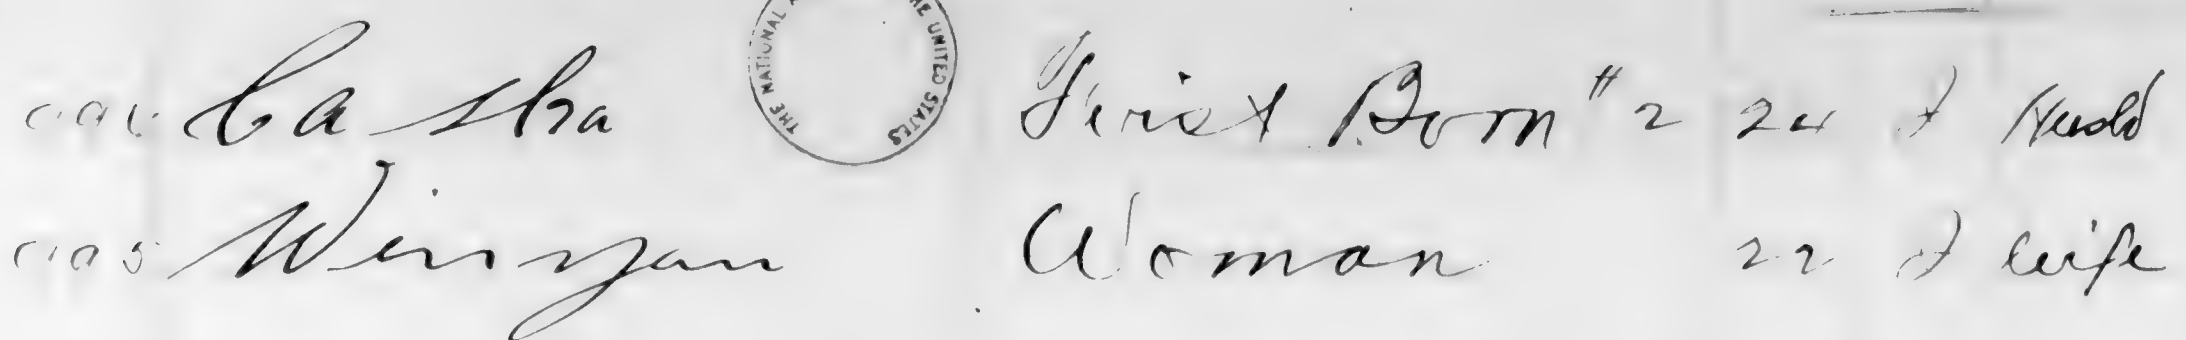 THE NATIONAL UNITED STATES
Caska First Born #2 24 Husb
Winyan Woman 22 wife